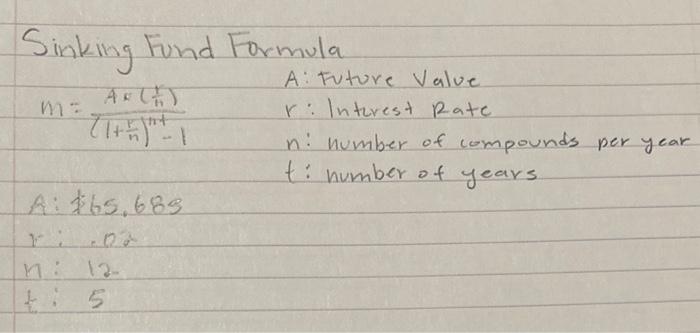 Sinking Fund Formula
A: Future Value
m = A * (r/n) / (1 + r/n)^nt - 1
r: Interest Rate
n: number of compounds per year
t: number of years
A: $65,685
r: .02
n: 12
t: 5